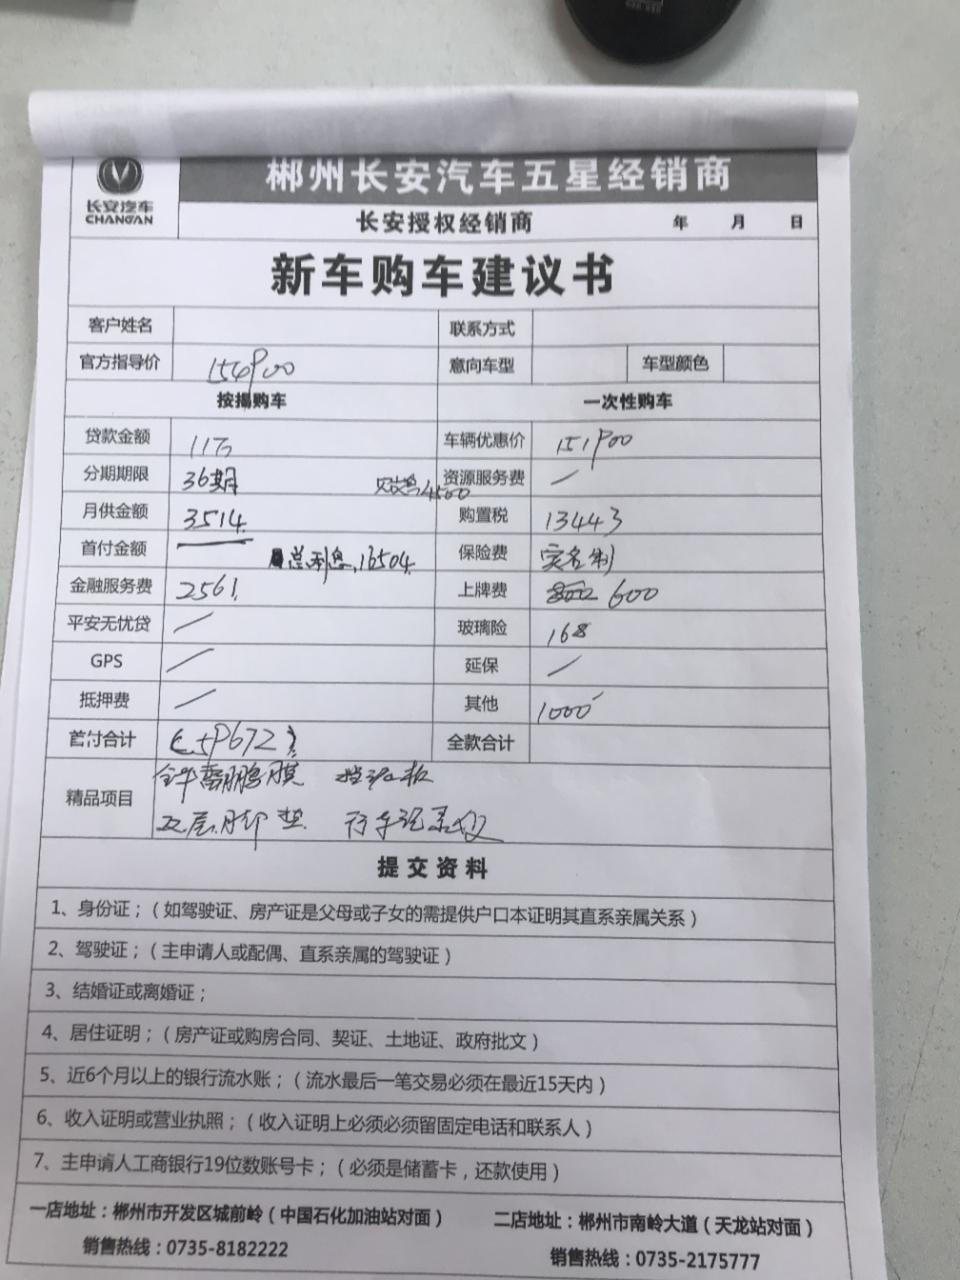 郴州长安汽车五星经销商
长安汽车
CHANGAN
长安授权经销商 年 月 日
新车购车建议书
客户姓名 联系方式
官方指导价 154900 意向车型 车型颜色
按揭购车 一次性购车
贷款金额 11万 车辆优惠价 151900
分期期限 36期 4500 资源服务费 /
月供金额 3514 购置税 13443
首付金额 总利息 16504 保险费 实名制
金融服务费 2561 上牌费 600
平安无忧贷 / 玻璃险 168
GPS / 延保 /
抵押费 / 其他 1000
首付合计 (59672) 全款合计
精品项目 全车 鹏膜 挡泥板
双层脚垫 行车记录仪
提交资料
1、身份证；（如驾驶证、房产证是父母或子女的需提供户口本证明其直系亲属关系）
2、驾驶证；（主申请人或配偶、直系亲属的驾驶证）
3、结婚证或离婚证；
4、居住证明；（房产证或购房合同、契证、土地证、政府批文）
5、近6个月以上的银行流水账；（流水最后一笔交易必须在最近15天内）
6、收入证明或营业执照；（收入证明上必须必须留固定电话和联系人）
7、主申请人工商银行19位数账号卡；（必须是储蓄卡，还款使用）
一店地址：郴州市开发区城前岭（中国石化加油站对面） 二店地址：郴州市南岭大道（天龙站对面）
销售热线：0735-8182222 销售热线：0735-2175777